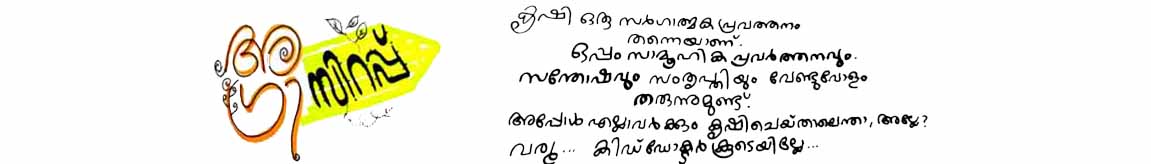 സിറപ്പ്
കൃഷി ഒരു സർഗാത്മക പ്രവത്തനം
തന്നെയാണ്.
ഒപ്പം സാമൂഹിക പ്രവർത്തനവും.
സന്തോഷവും സംതൃപ്തിയും വേണ്ടുവോളം
തരുന്നുമുണ്ട്.
അപ്പോൾ എല്ലാവർക്കും കൃഷിചെയ്താലെന്താ, അല്ലേ?
വരൂ... കിഡ്ഡോക്ടർ കൂടെയില്ലേ...